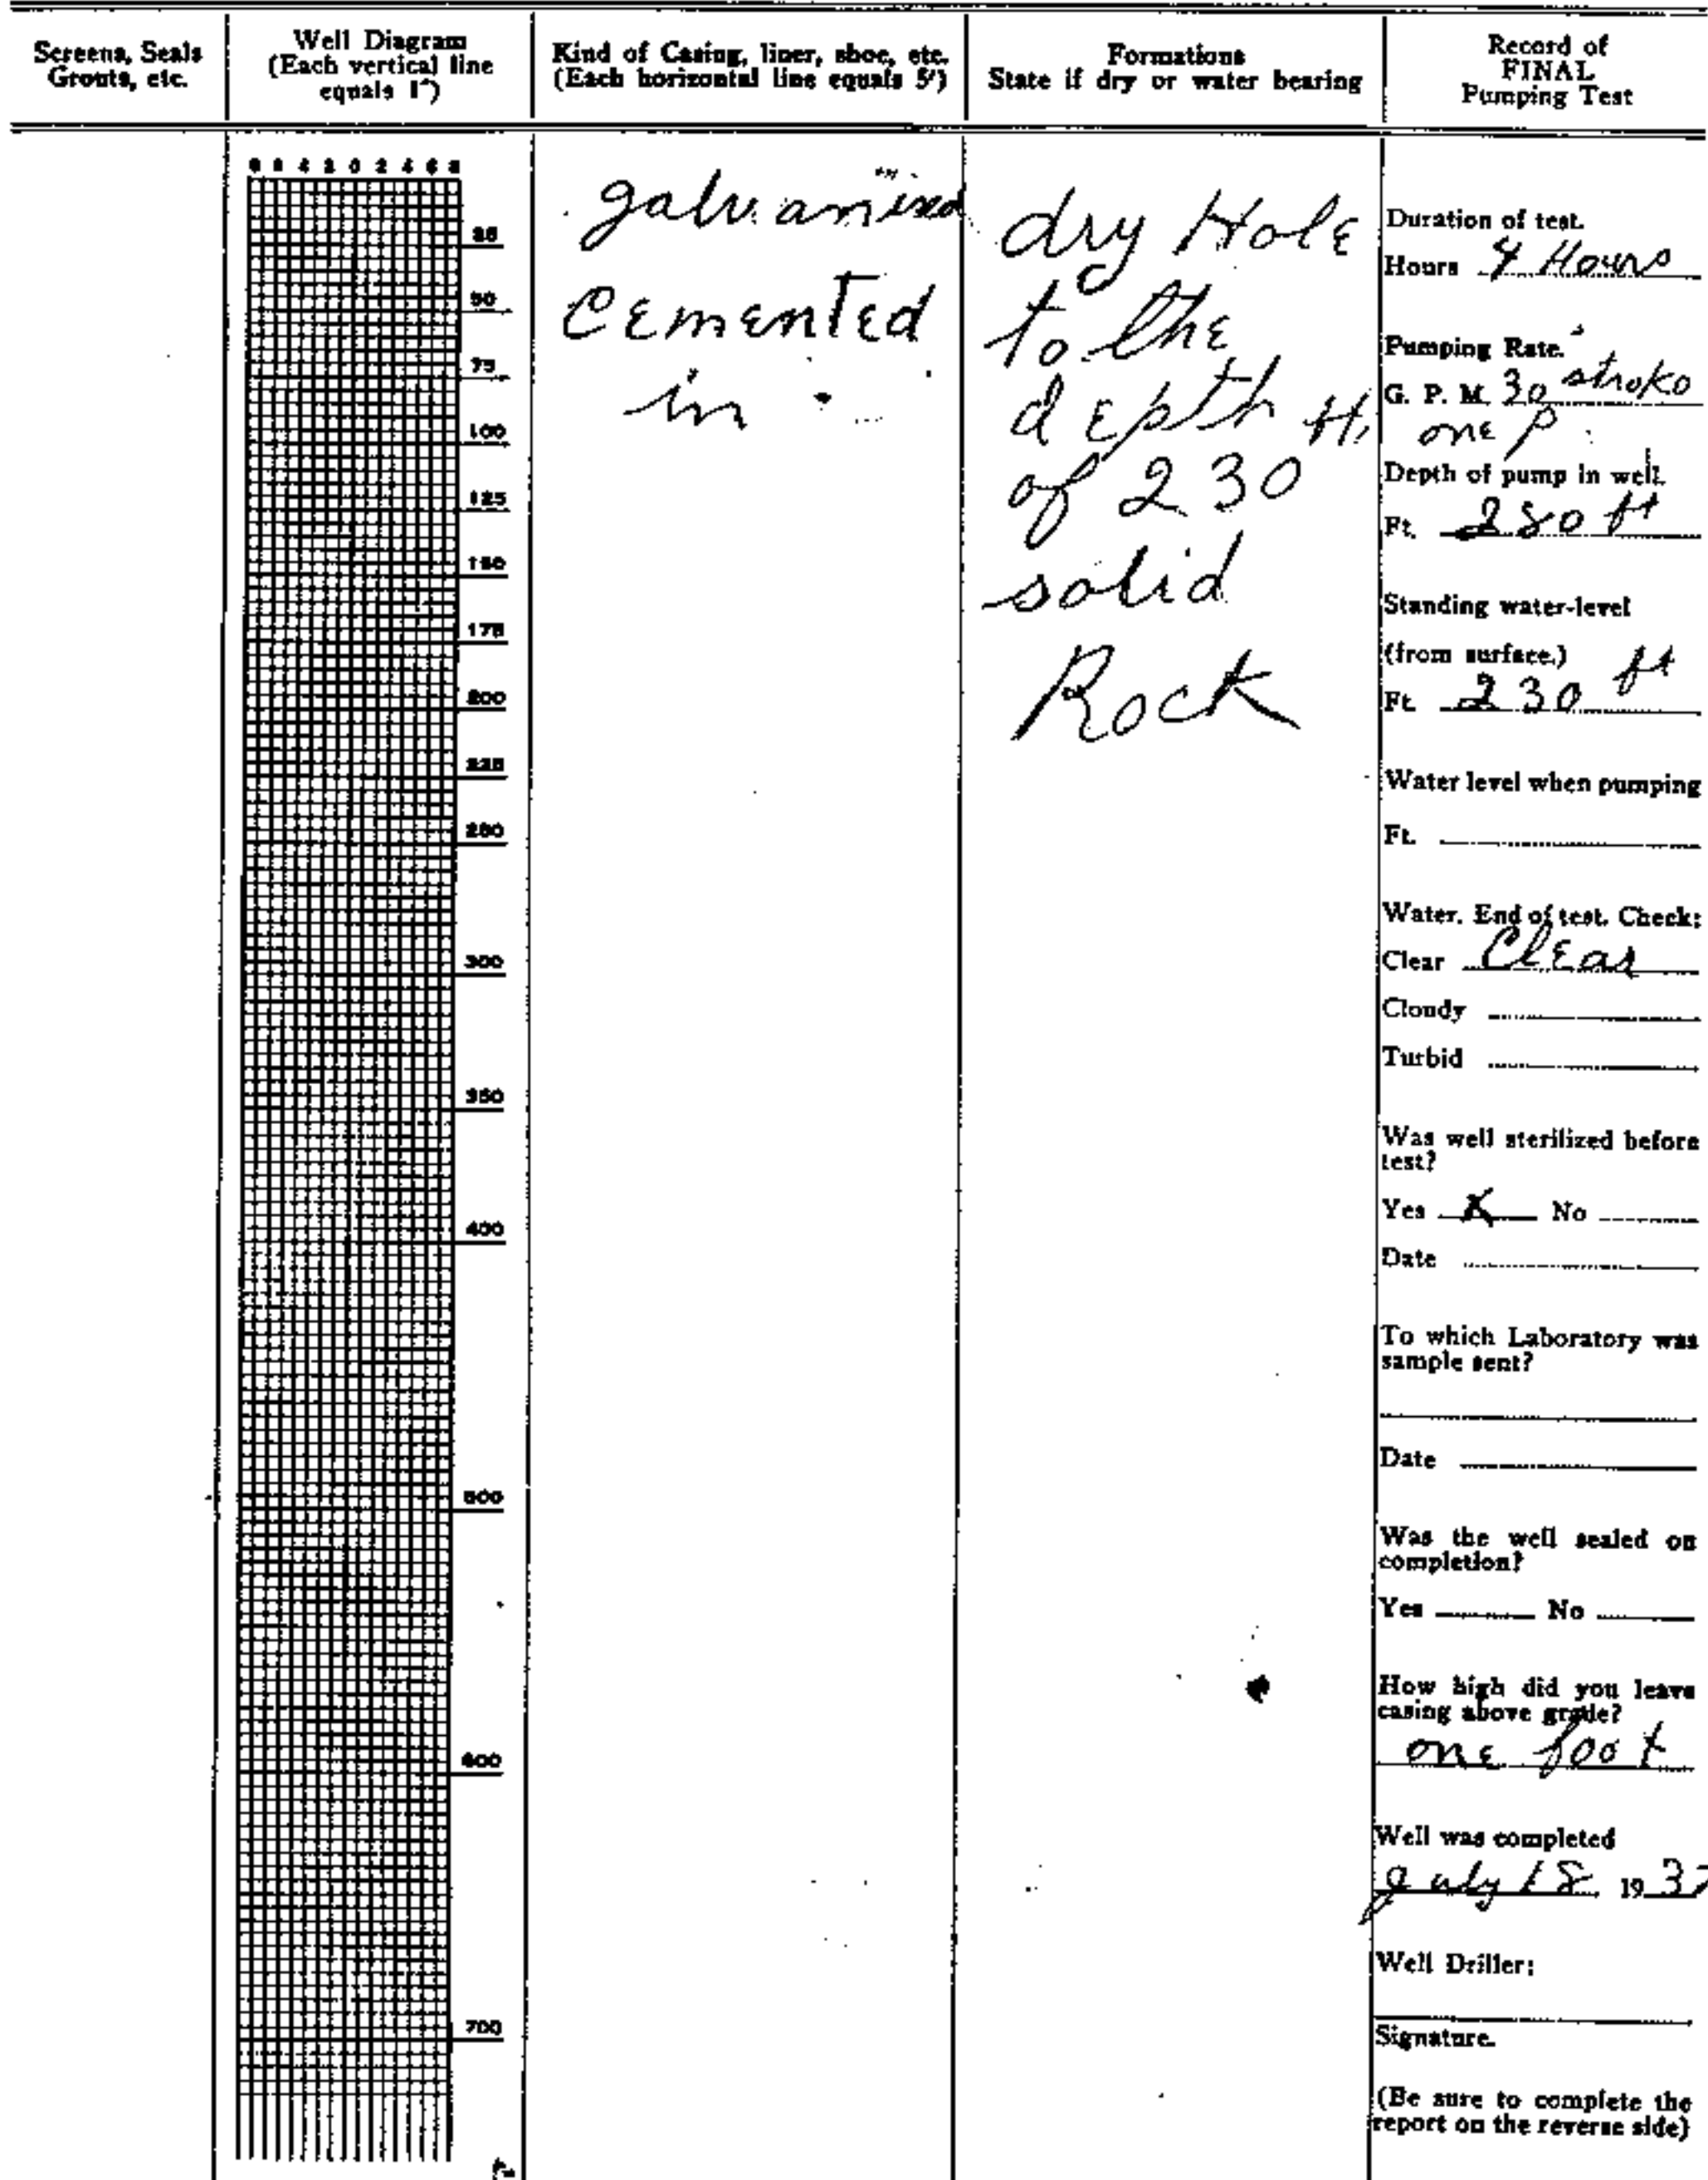 Screens, Seals
Grouts, etc.
Well Diagram
(Each vertical line
equals 1")
Kind of Casing, liner, shoe, etc.
(Each horizontal line equals 5')
Formations
State if dry or water bearing
Record of
FINAL
Pumping Test
8 6 4 2 0 2 4 6 8
25
50
75
100
125
150
175
200
225
250
300
350
400
500
600
700
galvanized
Cemented
in
dry Hole
to the
depth ft.
of 230
solid
Rock
Duration of test.
Hours 4 Hours
Pumping Rate.
G. P. M. 30 stroke
one p
Depth of pump in well.
Ft. 280 ft
Standing water-level
(from surface.)
Ft. 230 ft
Water level when pumping
Ft.
Water. End of test. Check:
Clear Clear
Cloudy
Turbid
Was well sterilized before
test?
Yes X No
Date
To which Laboratory was
sample sent?
Date
Was the well sealed on
completion?
Yes No
How high did you leave
casing above grade?
one foot
Well was completed
July 18 1937
Well Driller:
Signature.
(Be sure to complete the
report on the reverse side)